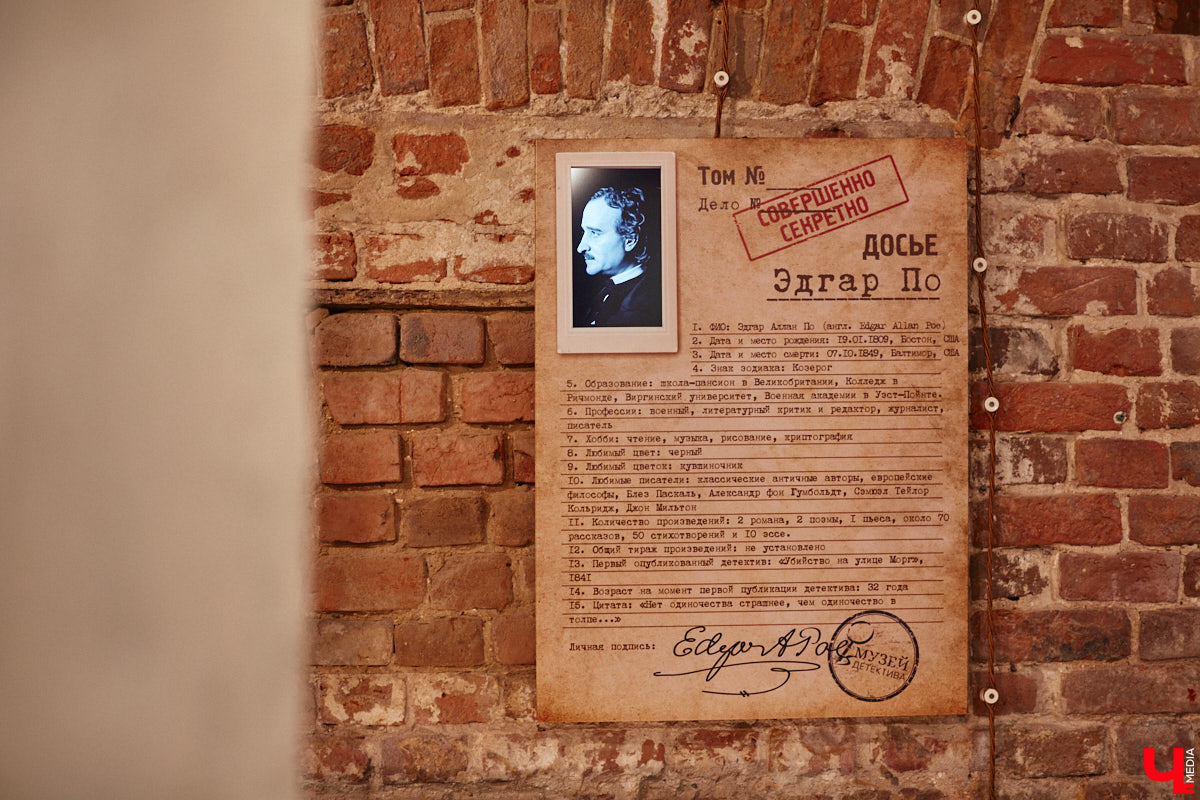 Том №
Дело №
СОВЕРШЕННО
СЕКРЕТНО
ДОСЬЕ
Эдгар По
1. ФИО: Эдгар Аллан По (англ. Edgar Allan Poe)
2. Дата и место рождения: 19.01.1809, Бостон, США
3. Дата и место смерти: 07.10.1849, Балтимор, США
4. Знак зодиака: Козерог
5. Образование: школа-пансион в Великобритании, Колледж в
Ричмонде, Виргинский университет, Военная академии в Уэст-Пойнте.
6. Профессии: военный, литературный критик и редактор, журналист,
писатель
7. Хобби: чтение, музыка, рисование, криптография
8. Любимый цвет: черный
9. Любимый цветок: кувшиночник
10. Любимые писатели: классические античные авторы, европейские
философы, Блез Паскаль, Александр фон Гумбольдт, Сэмюэл Тейлор
Кольридж, Джон Мильтон
11. Количество произведений: 2 романа, 2 поэмы, 1 пьеса, около 70
рассказов, 50 стихотворений и 10 эссе.
12. Общий тираж произведений: не установлено
13. Первый опубликованный детектив: «Убийство на улице Морг»,
1841
14. Возраст на момент первой публикации детектива: 32 года
15. Цитата: «Нет одиночества страшнее, чем одиночество в
толпе...»
Личная подпись: Edgar A Poe
МУЗЕЙ
ДЕТЕКТИВА
Ч MEDIA